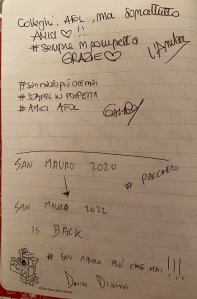 Colleghi, AFOL, ma soprattutto
AMICI ♡!!
#sempre in pompetta
GRAZIE ♡
#sanmauro più che mai
#SEMPRE IN POMPETTA
#AMICI AFOL
SAN MAURO 2020
# PACCHERO
SAN MAURO 2022
IS BACK
# SAN MAURO PIÙ CHE MAI !!!